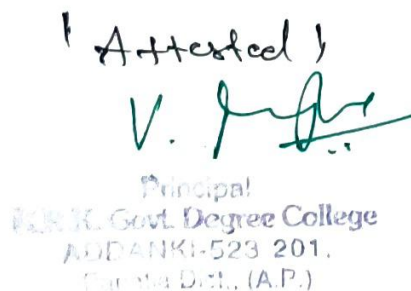 'Attested'
V.
Principal
Govt. Degree College
ADDANKI-523 201.
Dist., (A.P.)